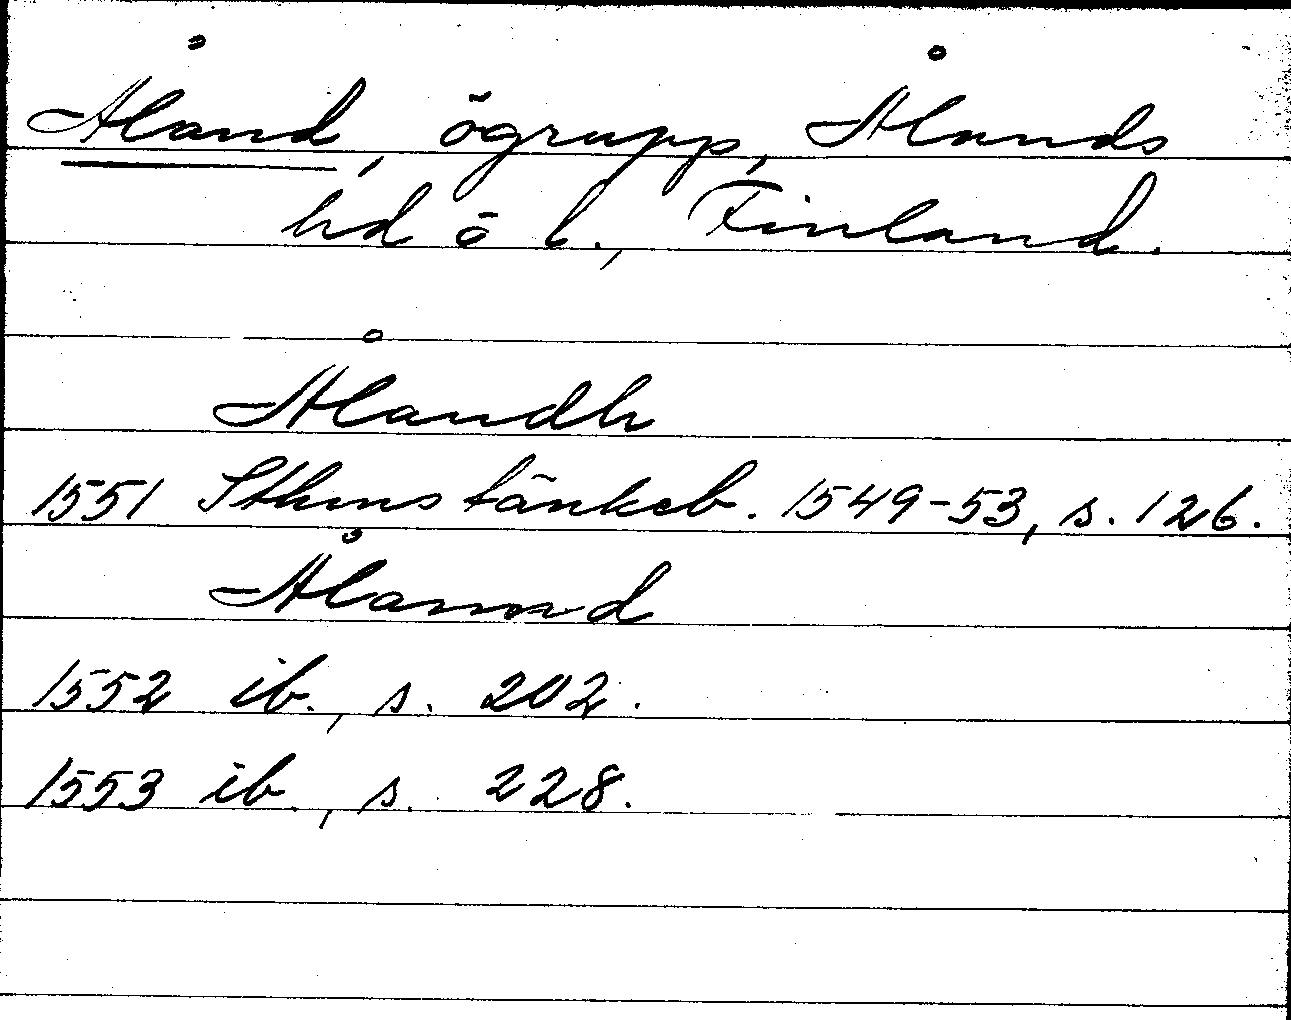 Åland, ögrupp, Ålands
hd ö l., Finland.
Ålandh
1551 Sthms tänkeb. 1549-53, s. 126.
Ålannd
1552 ib., s. 202.
1553 ib., s. 228.